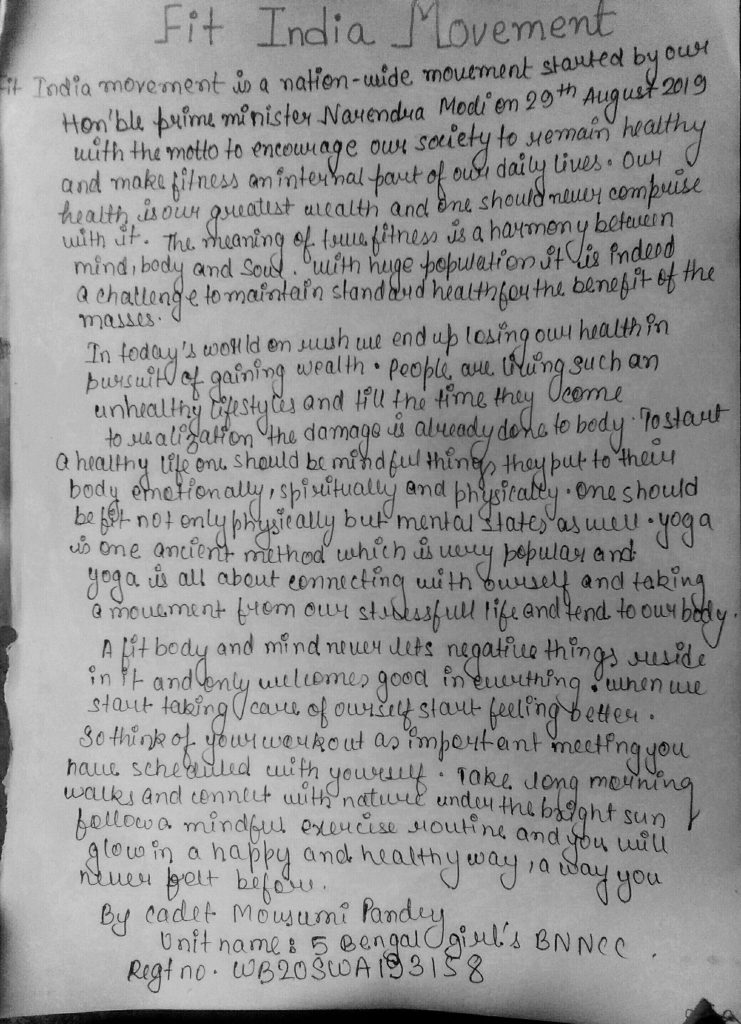 Fit India Movement
Fit India movement is a nation-wide movement started by our
Hon'ble prime minister Narendra Modi on 29th August 2019
with the motto to encourage our society to remain healthy
and make fitness an internal part of our daily lives. Our
health is our greatest wealth and one should never comprise
with it. The meaning of true fitness is a harmony between
mind, body and soul. With huge population it is indeed
a challenge to maintain standard health for the benefit of the
masses.
In today's world on rush we end up losing our health in
pursuit of gaining wealth. People are living such an
unhealthy lifestyles and till the time they come
to realization the damage is already done to body. To start
a healthy life one should be mindful things they put to their
body emotionally, spiritually and physically. One should
be fit not only physically but mental states as well. yoga
is one ancient method which is very popular and
yoga is all about connecting with ourself and taking
a movement from our stressfull life and tend to our body.
A fit body and mind never lets negative things reside
in it and only welcomes good in everthing. when we
start taking care of ourself start feeling better.
So think of your workout as important meeting you
have scheduled with yourself. Take long morning
walks and connect with nature under the bright sun
follow a mindful exercise routine and you will
glow in a happy and healthy way, a way you
never felt before.
By cadet Mousumi Pandey
Unit name: 5 Bengal girl's BN NCC.
Regt no. WB20SWA193158